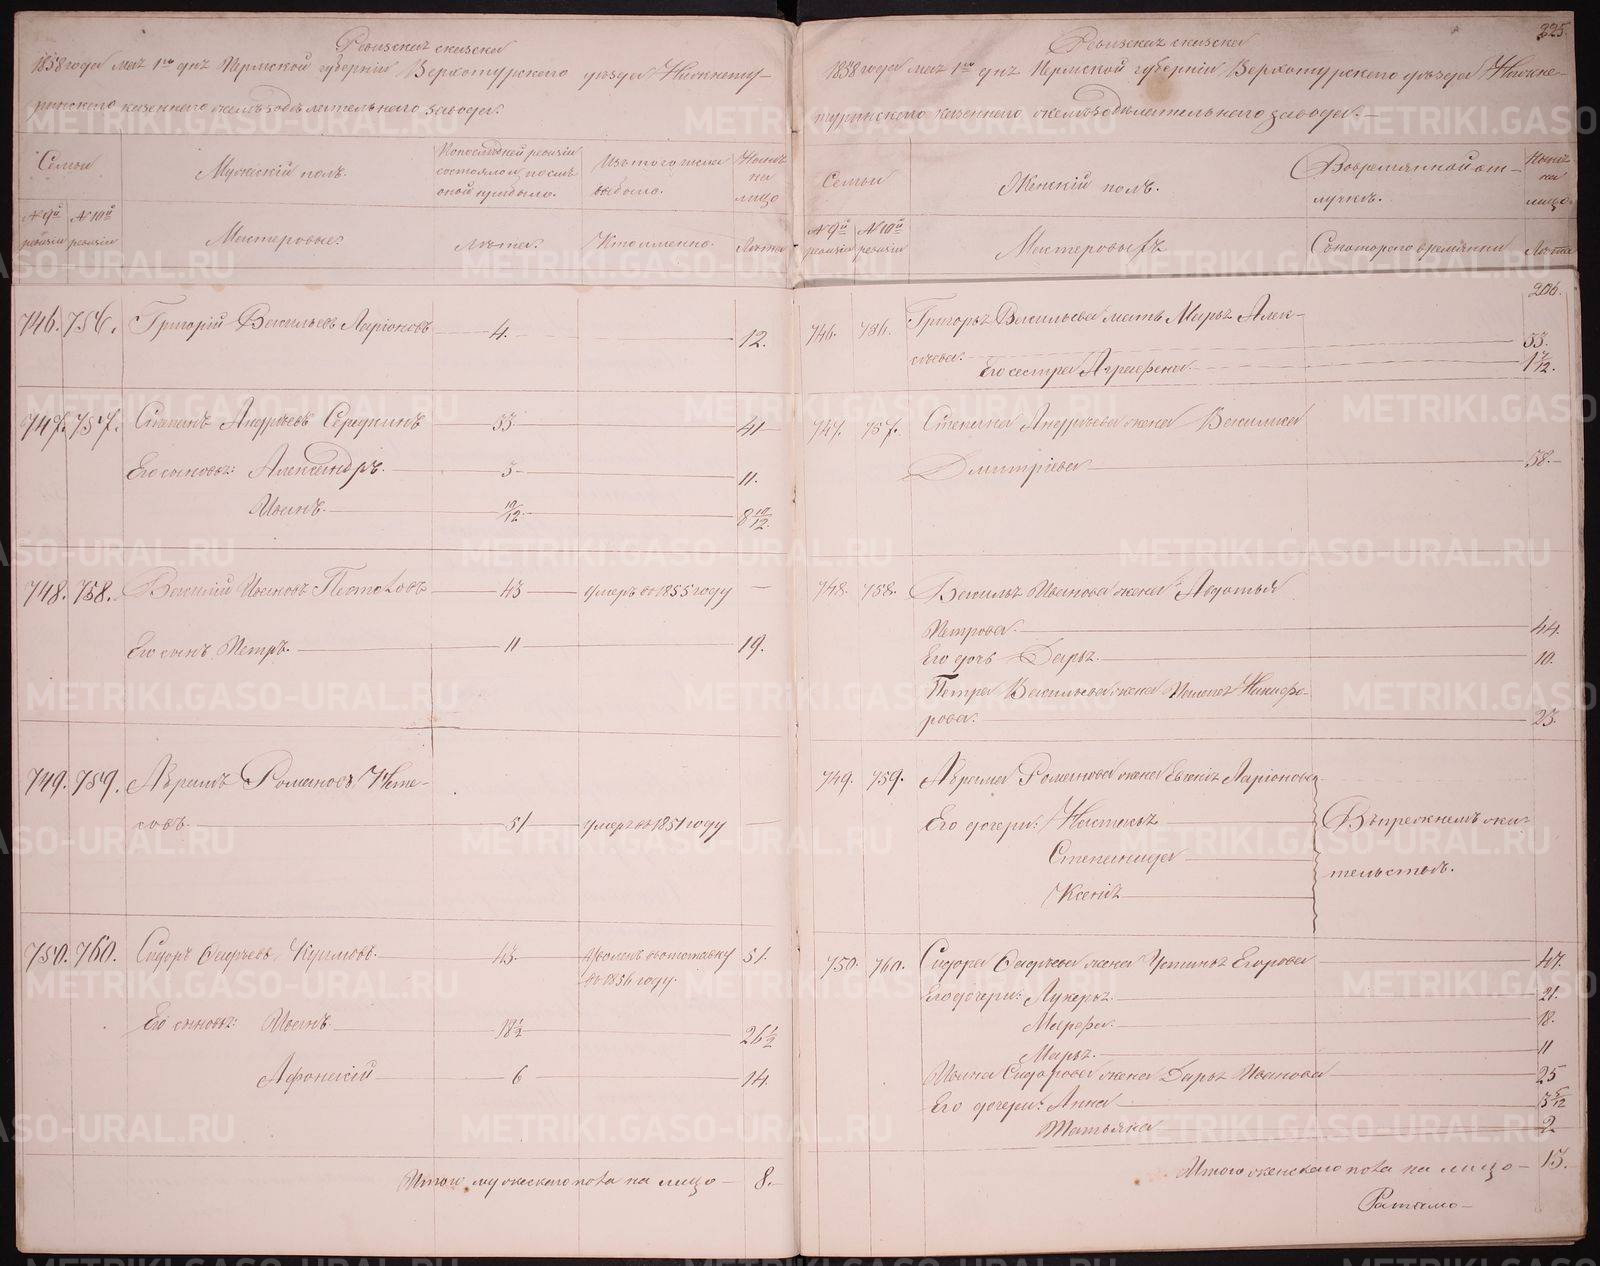 Ревизская сказка
1858 года мая 1го дня Пермской губернiи Верхотурскаго уѣзда Нижнету-
ринскаго казеннаго желѣзодѣлательнаго завода.
Семьи
Мужескiй полъ.
По послѣдней ревизiи состояло и послѣ оной прибыло.
Изъ того числа выбыло.
Нынѣ на лицо
№ 9й ревизiи
№ 10й ревизiи
Мастеровые:
Лѣта.
Кто именно.
Лѣта
746. 756. Григорiй Васильевъ Ларiоновъ 4. 12.
747. 757. Степанъ Андреевъ Середкинъ 33 41
Его сыновья: Александръ. 3 11.
Иванъ. 10/12. 8 10/12.
748. 758. Василiй Ивановъ Потаповъ 43 умеръ въ 1855 году —
Его сынъ Петръ. 11 19.
749. 759. Абрамъ Романовъ
51 умеръ въ 1851 году —
750. 760. Сидоръ Андреевъ 43. Уволенъ въ отставку 51.
въ 1856 году.
Его сыновья: Иванъ 18½ 26½
Афонасiй 6 14
Итого мужескаго пола на лицо — 8.
325.
Ревизская сказка
1858 года мая 1го дня Пермской губернiи Верхотурскаго уѣзда Нижне-
туринскаго казеннаго желѣзодѣлательнаго завода. —
Семьи
Женскiй полъ.
Во временной от-
лучкѣ.
Нынѣ на лицо
№ 9й ревизiи
№ 10й ревизiи
Мастеровыхъ
Съ котораго времени
Лѣта
206.
746. 756. Григорья Васильева мать Марья Алек-
сѣева. 53.
Его сестра Аграфена 1 7/12.
747. 757. Степана Андреева жена Василиса
Дмитрiева 38.
748. 758. Василья Иванова жена Авдотья
Петрова. 44.
Его дочь Дарья. 10.
Петра Васильева жена Пелагея Никифо-
рова. 23.
749. 759. Абрама Романова жена Евгенiя Ларiонова
Его дочери: Настасья
Степанида
Ксенiя
Въ прежнемъ жи-
тельствѣ.
750. 760. Сидора Андреева жена Устинья Егорова 47.
Его дочери: Лукерья. 21.
Марфа. 18.
Марья. 11
Ивана Сидорова жена Дарья Иванова 25
Его дочери: Анна 3 5/12
Татьяна 2
Итого женскаго пола на лицо — 13.
METRIKI.GASO-URAL.RU